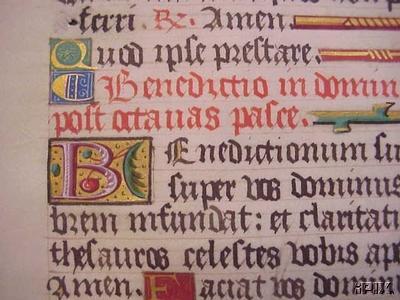 ferri. Rx. Amen.
Quod ipse prestare.
Benedictio in domin
post octavas pasce.
Benedictionum su
super vos dominus
brem infundat: et claritati
thesauros celestes vobis ape
Amen. Faciat vos domin